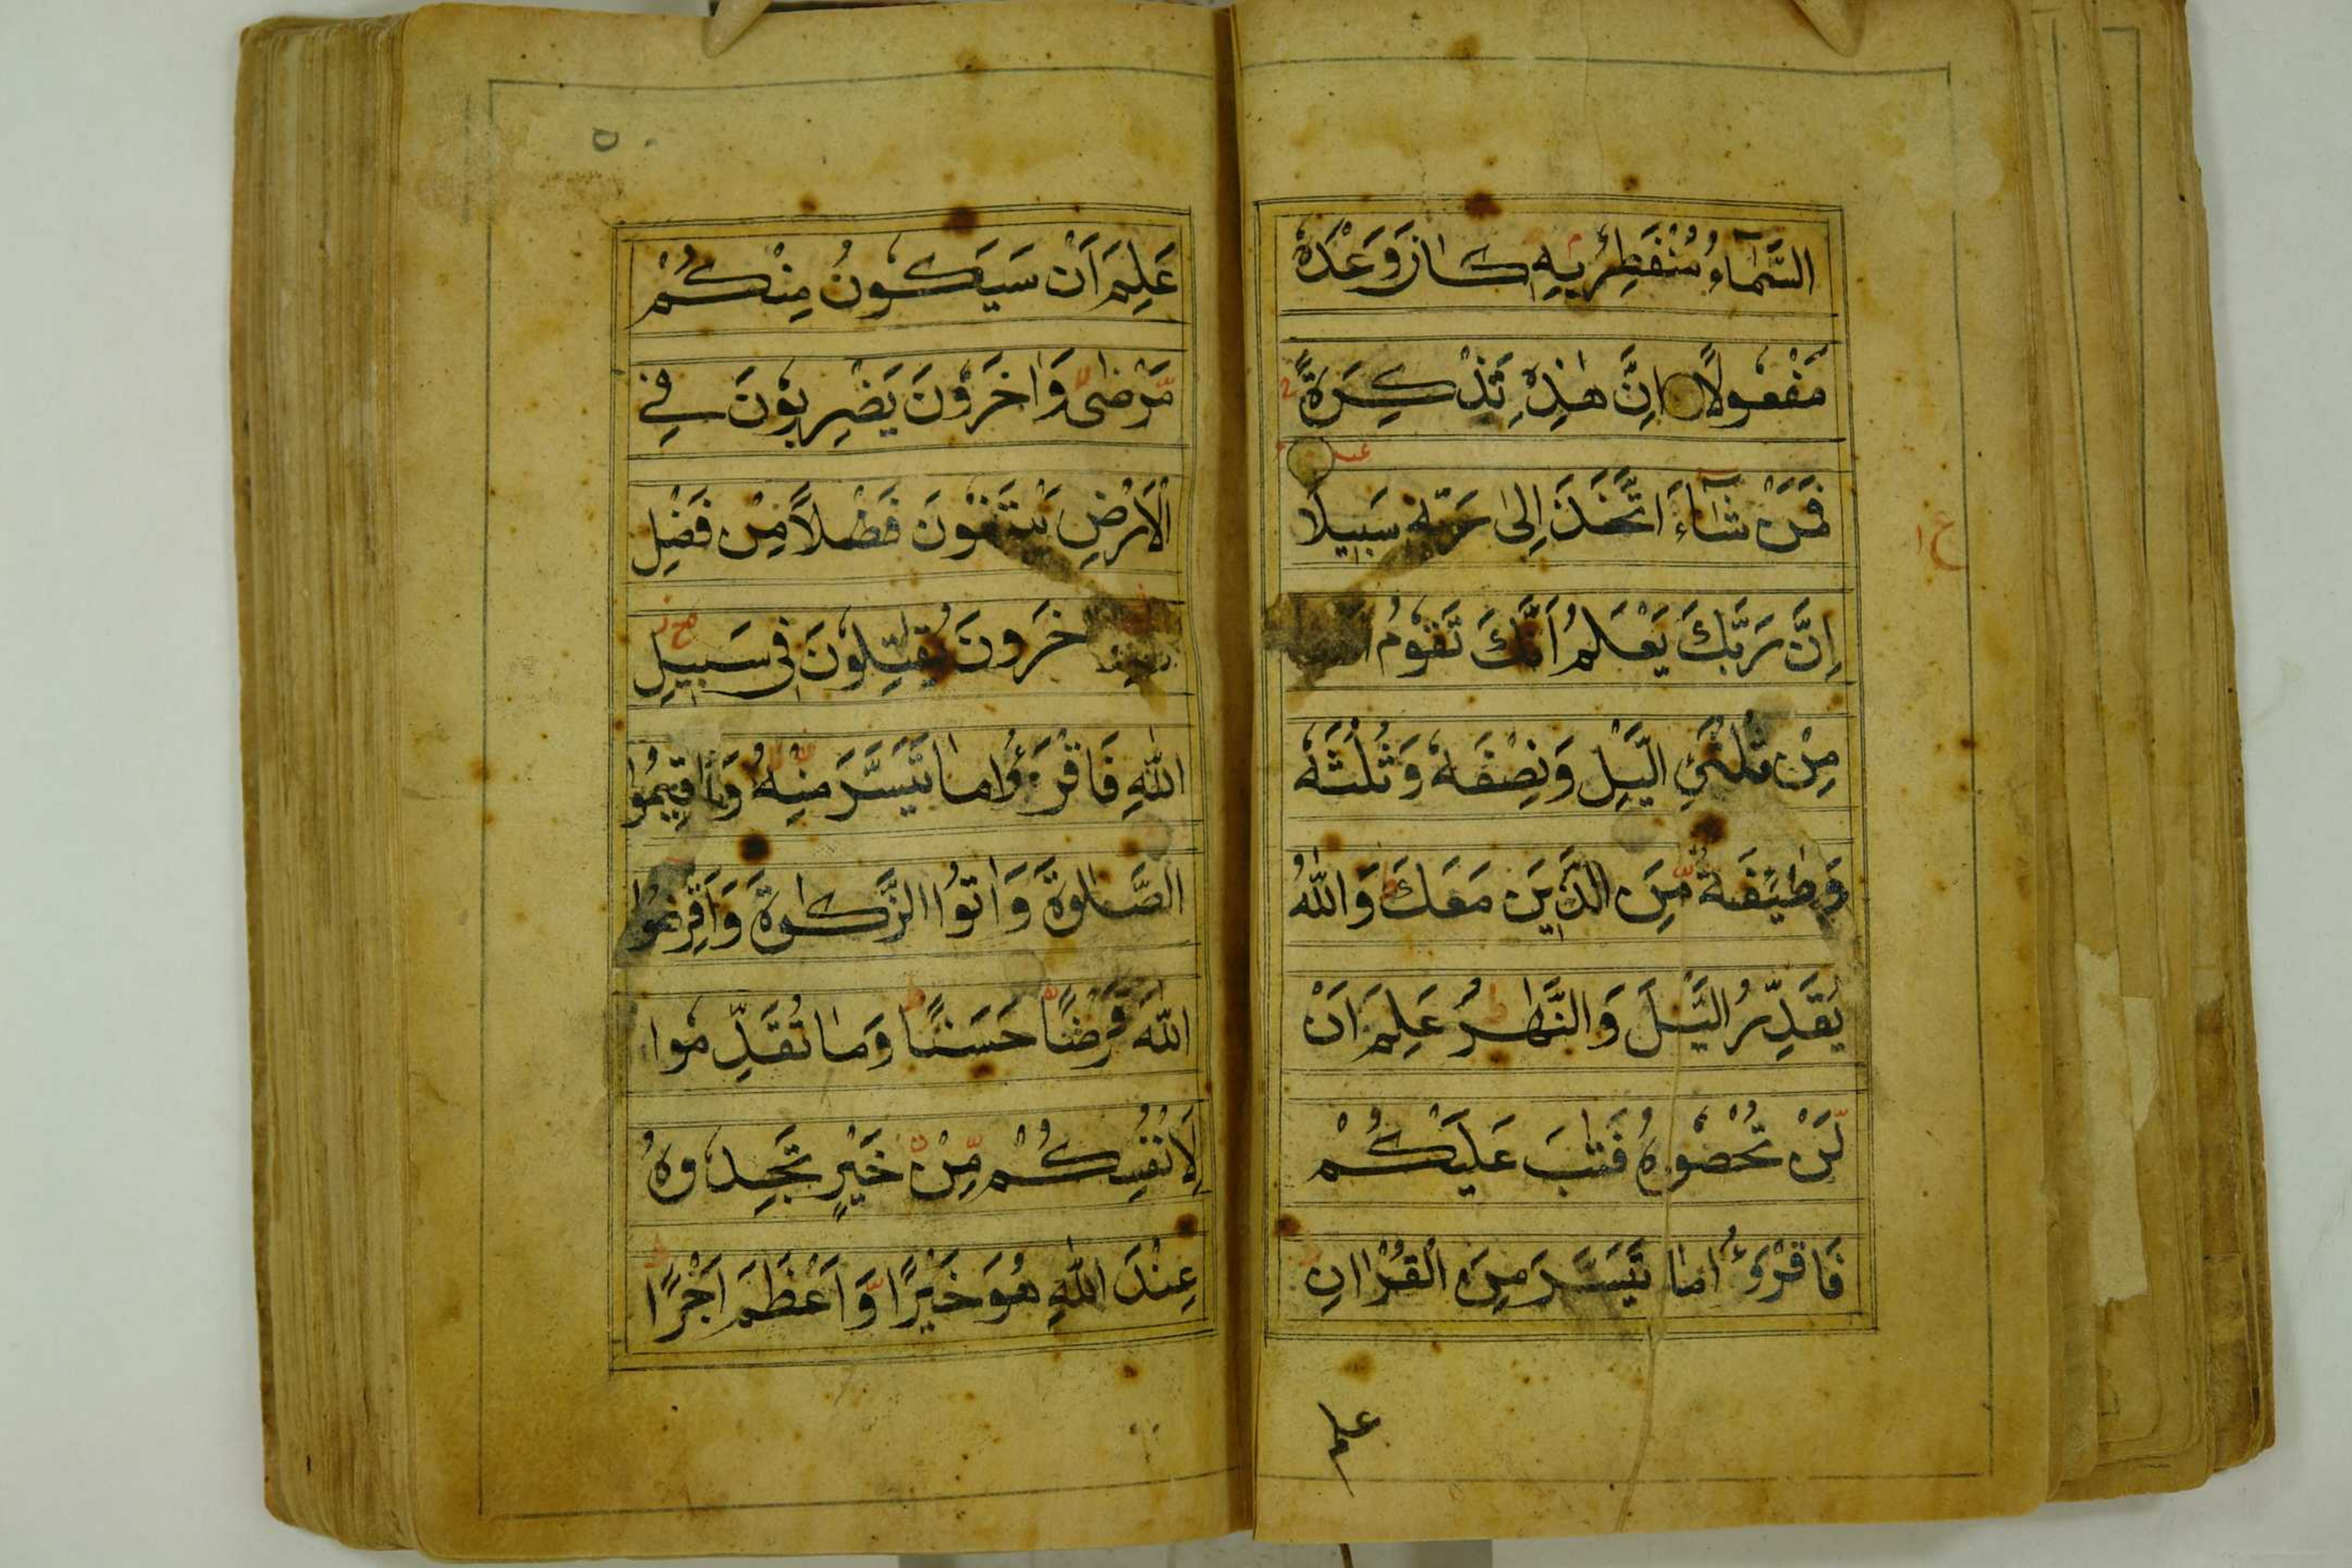 السَّمَاۤءُ مُنْفَطِرٌۢ بِهٖ كَانَ وَعْدُهٗ
مَفْعُوْلًا اِنَّ هٰذِهٖ تَذْكِرَةٌ
فَمَنْ شَاۤءَ اتَّخَذَ اِلٰى رَبِّهٖ سَبِيْلًا
اِنَّ رَبَّكَ يَعْلَمُ اَنَّكَ تَقُوْمُ
مِنْ ثُلُثَيِ الَّيْلِ وَنِصْفَهٗ وَثُلُثَهٗ
وَطَاۤئِفَةٌ مِّنَ الَّذِيْنَ مَعَكَ وَاللّٰهُ
يُقَدِّرُ الَّيْلَ وَالنَّهٰرَ عَلِمَ اَنْ
لَّنْ تُحْصُوْهُ فَتٰبَ عَلَيْكُمْ
فَاقْرَؤُا مَا تَيَسَّرَ مِنَ الْقُرْاٰنِ
علم
عَلِمَ اَنْ سَيَكُوْنُ مِنْكُمْ
مَّرْضٰى وَاٰخَرُوْنَ يَضْرِبُوْنَ فِي
الْاَرْضِ يَبْتَغُوْنَ فَضْلًا مِنْ فَضْلِ
خَرُوْنَ يُقٰتِلُوْنَ فِيْ سَبِيْلِ
اللّٰهِ فَاقْرَؤُا مَا تَيَسَّرَ مِنْهُ وَاَقِيْمُوا
الصَّلٰوةَ وَاٰتُوا الزَّكٰوةَ وَاَقْرِضُوا
اللّٰهَ قَرْضًا حَسَنًا وَمَا تُقَدِّمُوْا
لِاَنْفُسِكُمْ مِّنْ خَيْرٍ تَجِدُوْهُ
عِنْدَ اللّٰهِ هُوَ خَيْرًا وَّاَعْظَمَ اَجْرًا